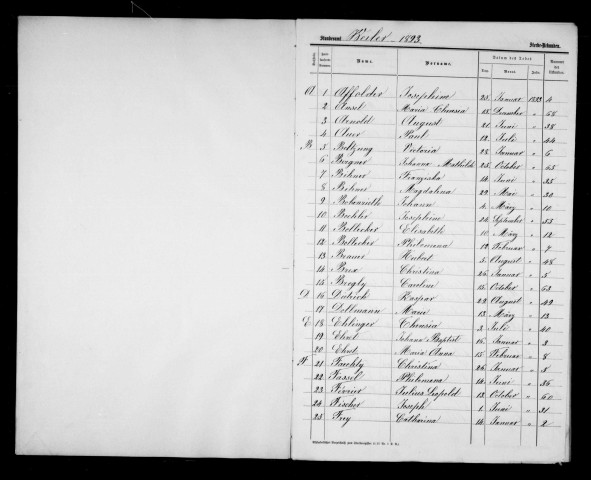 Standesamt Weiler 1893. Sterbe-Urkunden.
Name. Vorname. Datum des Todes. Nummer der Urkunden
Tag. Monat. Jahr.
A 1 Affolder Josephine 25. Januar 1893 4
2 Ansel Maria Theresia 18. Dezember " 58
3 Arnold August 21. Juni " 38
4 Auer Paul 12. Juli " 44
B 5 Baltzung Victoria 28. Januar " 6
6 Johanna Mathilde 25. October " 65
7 Bihner Franziska 14. Juni " 35
8 Bihner Magdalena 29. Mai " 30
9 Johann 4. März " 10
10 Bechler Josephine 24. September " 55
11 Bellicker Elisabeth 10. März " 12
12 Bellicker Philomena 12. Februar " 7
13 Hubert 5. August " 48
14 Brux Christina 26. Januar " 5
15 Caroline 15. October " 63
D 16 Dietrich Kaspar 22. August " 49
17 Dollmann Marie 13. März " 13
E 18 Ehlinger Theresia 3. Juli " 40
19 Ehret Johann Baptist 16. Januar " 3
20 Ehret Maria Anna 15. Februar " 8
F 21 Faechtig Christina 26. Januar " 5
22 Fassel Philomena 14. Juni " 36
23 Février Julius Leopold 12. October " 60
24 Fischer Joseph 1. Juni " 31
25 Frey Catharina 14. Januar " 2